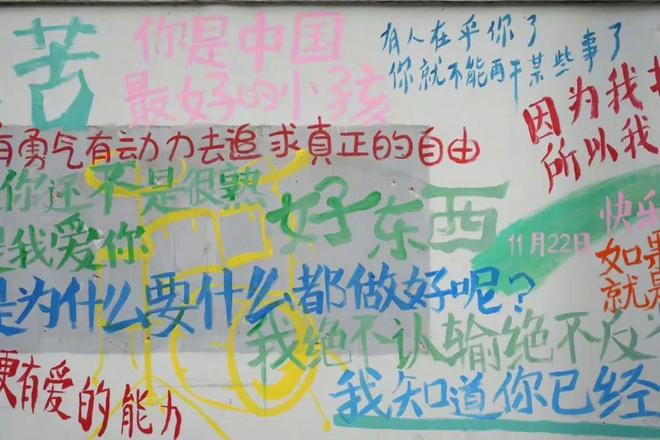 苦
你是中国
最好的小孩
有人在乎你了
你就不能再干某些事了
因为我
所以我
有勇气有动力去追求真正的自由
你还不是很熟
是我爱你
好东西
11月22日
快乐
如果
就是
是为什么要什么都做好呢?
我绝不认输绝不反
要有爱的能力
我知道你已经